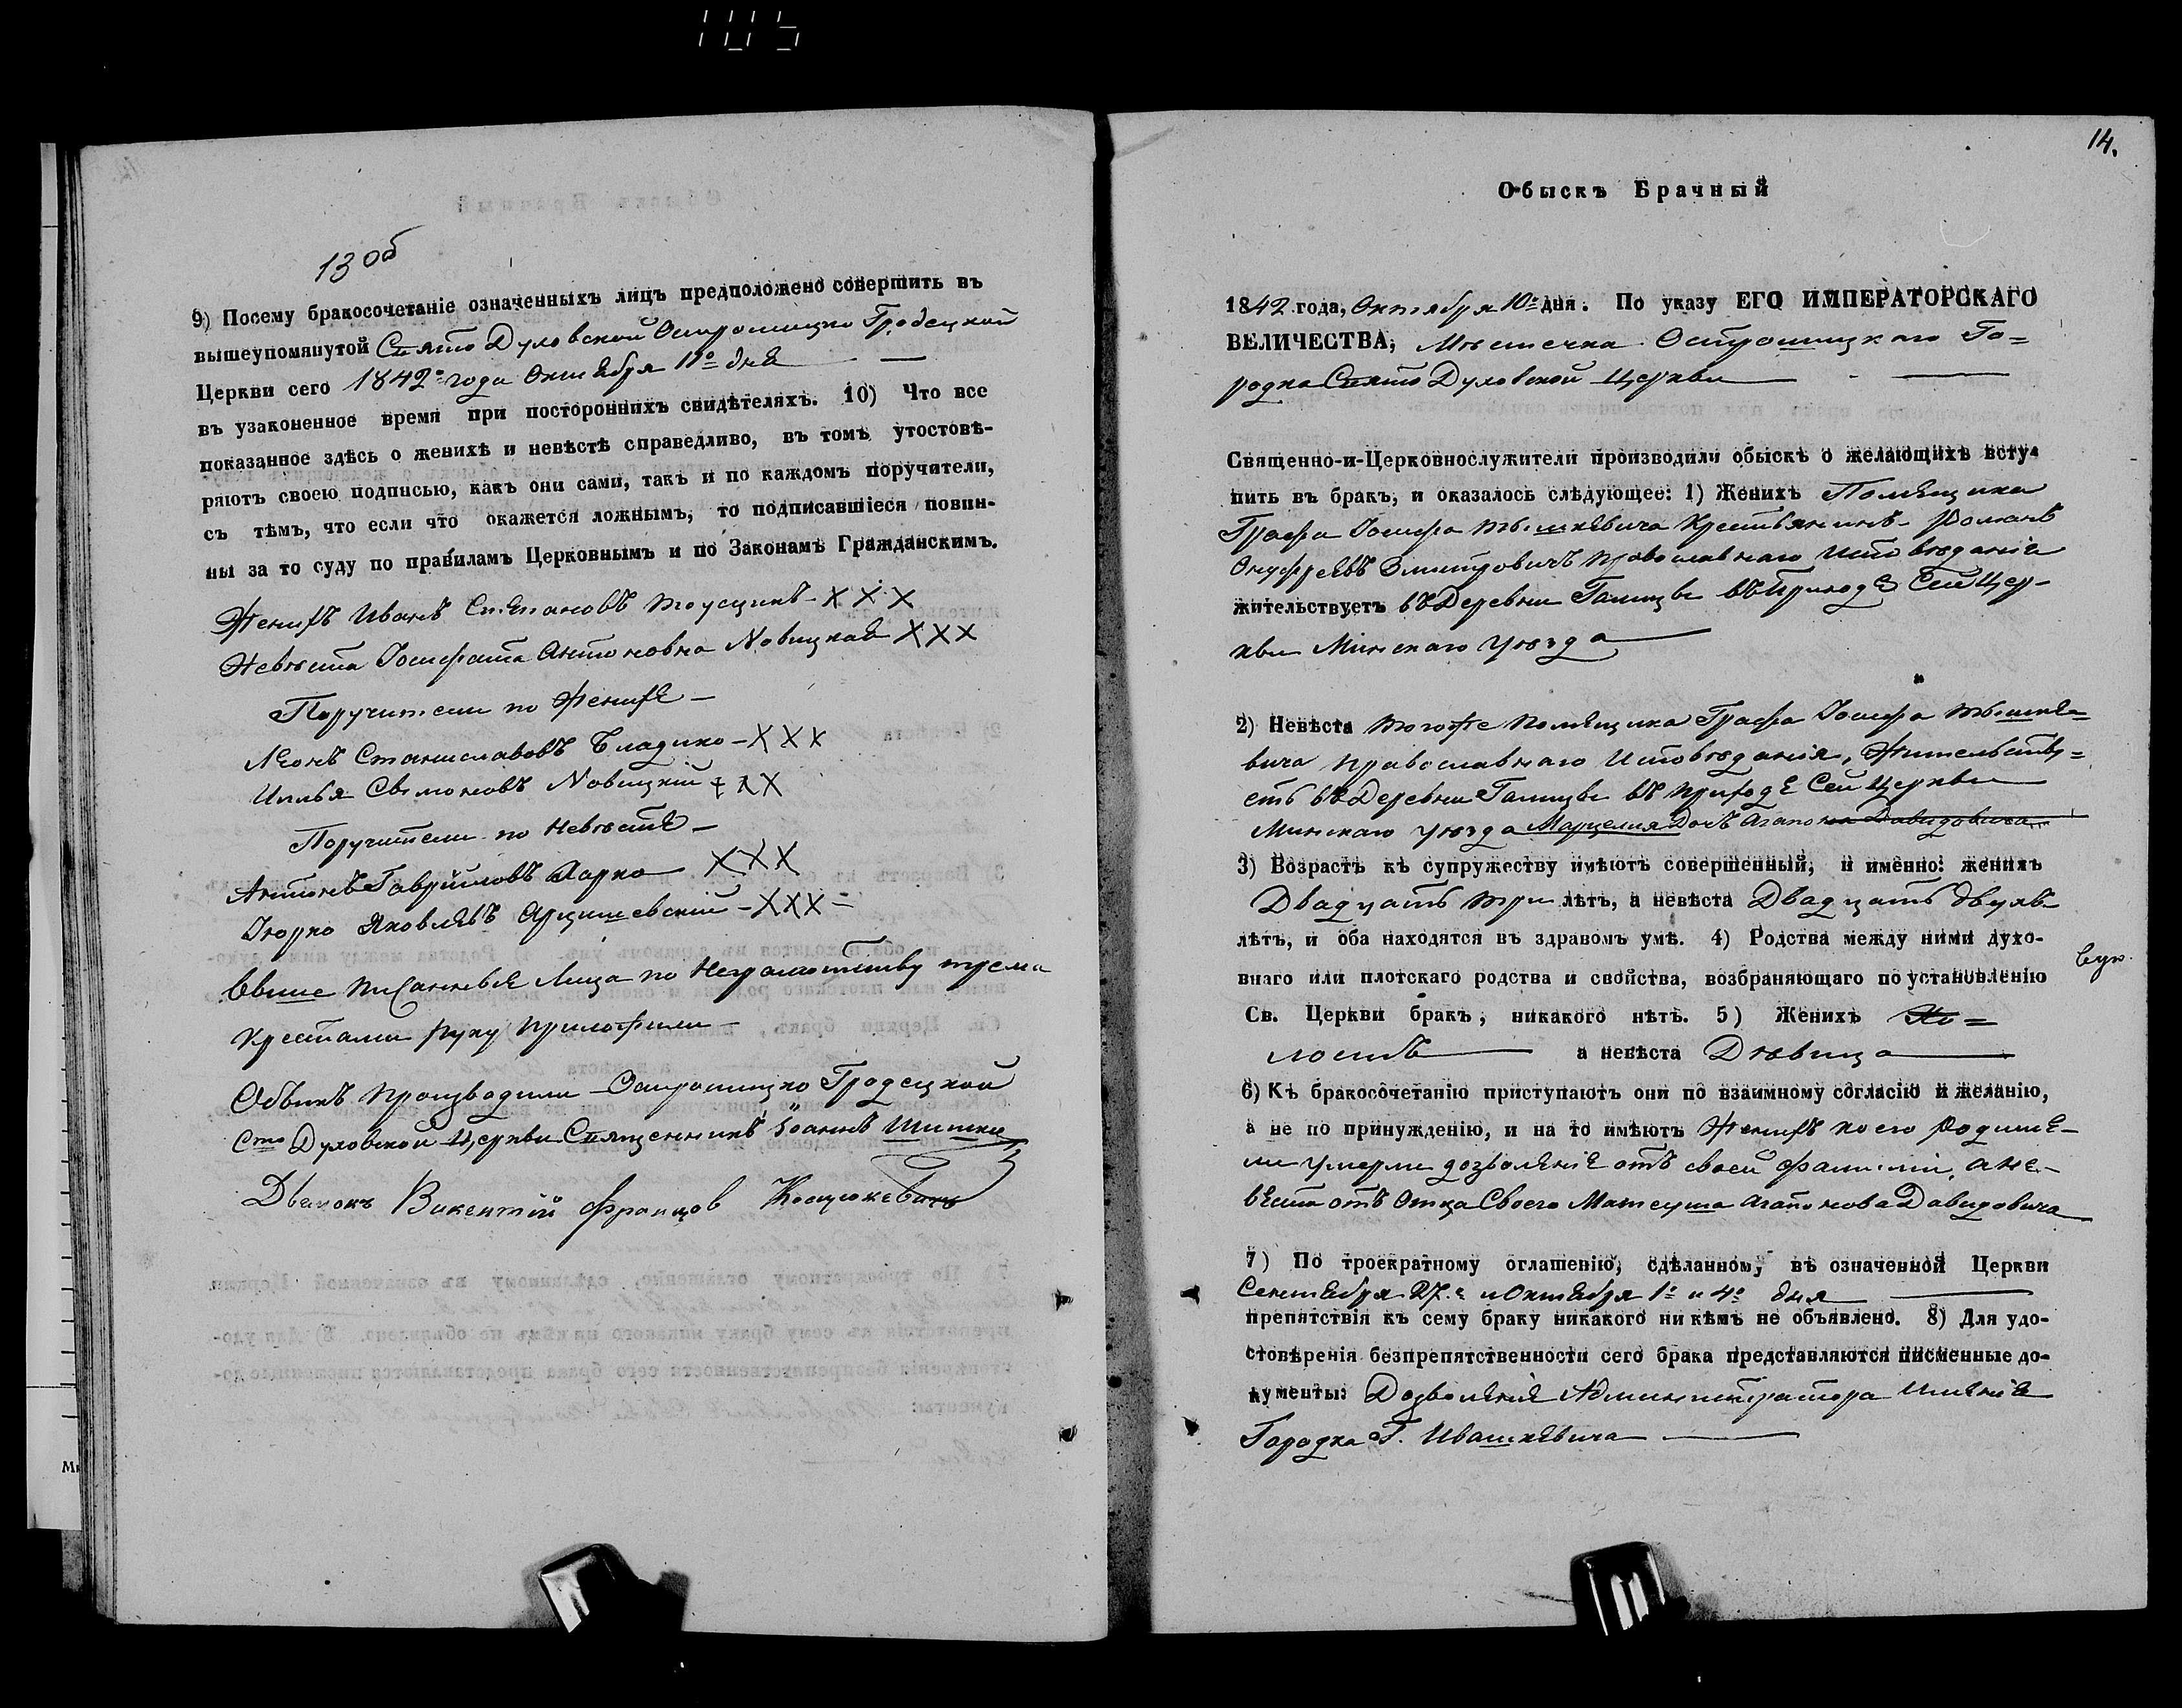 105
13 об
9) Посему бракосочетаніе означенныхъ лицъ предположено совершить въ
вышеупомянутой Свято Духовской Остромицко Гродецкой
Церкви сего 1842º года Октября 11º дня
въ узаконенное время при постороннихъ свидѣтеляхъ. 10) Что все
показанное здѣсь о женихѣ и невѣстѣ справедливо, въ томъ утостовѣ-
ряютъ своею подписью, какъ они сами, такъ и по каждомъ поручители,
съ тѣмъ, что если что окажется ложнымъ, то подписавшіеся повин-
ны за то суду по правиламъ Церковнымъ и по Законамъ Гражданскимъ.
Женихъ Иванъ Степановъ XXX
Невѣста Іосифата Антоновна Новицкая XXX
Поручители по Женихѣ –
Леонъ Станиславовъ Владыко – XXX
Илья Новицкій XXX
Поручители по невѣстѣ –
Антонъ Гавріиловъ Харко XXX
Яковлевъ Арцишевскій – XXX =
Выше писанные Лица по неграмотству трема
Крестами руку приложили –
Обыскъ производили – Остромицко Гродецкой
Сто Духовской Церкви Священникъ Іоаннъ Шишко
Дьячокъ Викентій Францов Костюкевичъ
14.
Обыскъ Брачный
1842 года, Октября 10º дня. По указу ЕГО ИМПЕРАТОРСКАГО
ВЕЛИЧЕСТВА, Мѣстечка Остромицкаго Го=
родка Свято Духовской Церкви
Священно-и-Церковнослужители производили обыскъ о желающихъ всту-
пить въ бракъ, и оказалось слѣдующее: 1) Женихъ Помѣщика
Графа Іосифа Тышкевича Крестьянинъ – Романъ
Онуфріевъ Змитровичъ православнаго исповѣданія
жительствуетъ въ Деревни Галицѣ въ приходѣ Сей Цер-
кви Минскаго уѣзда
2) Невѣста того же помѣщика Графа Іосифа Тышке=
вича православнаго Исповѣданія, Жительству=
етъ въ Деревни Галицѣ въ приходѣ Сей Церкви
Минскаго уѣзда Марцелия Дочь Агапона Давидовича
3) Возрастъ къ супружеству имѣютъ совершенный, и именно: женихъ
Двадцать три лѣтъ, а невѣста Двадцать двухъ
лѣтъ, и оба находятся въ здравомъ умѣ. 4) Родства между ними духо-
внаго или плотскаго родства и свойства, возбраняющаго по установленію
Св. Церкви бракъ, никакого нѣтъ. 5) Женихъ Хо=
лостъ а невѣста Дѣвица
6) Къ бракосочетанію приступаютъ они по взаимному согласію и желанію,
а не по принужденію, и на то имѣютъ Женихъ коего Родите-
ли умерли дозволеніе отъ своей фамиліи, а не-
вѣста отъ Отца Своего Матеуша Агапонова Давидовича
7) По троекратному оглашенію, сдѣланному въ означенной Церкви
Сентября 27.º и Октября 1º и 4º дня
препятствія къ сему браку никакого ни кѣмъ не объявлено. 8) Для удо-
стовѣренія безпрепятственности сего брака представляются писменные до-
кументы: Дозволеніе Администратора Имѣнія
Городка Г. Ивашкевича